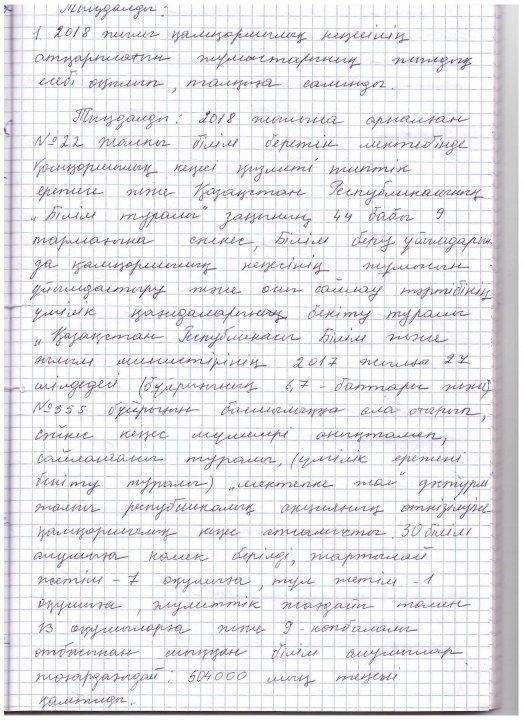 Тыңдалды:
1. 2018 жылғы қамқоршылық кеңесінің
атқарылатын жұмыстарының жылдық
есебі оқылып, талқыға салынды.
Тыңдалды: 2018 жылына арналған
№22 жалпы білім беретін мектебінде
Қамқоршылық кеңесі қызметі типтік
ережеге және Қазақстан Республикасының
"Білім туралы" заңының 44 бабы 9
тармағына сәйкес, Білім беру ұйымдарын-
да қамқоршылық кеңесінің жұмысын
ұйымдастыру және оны сайлау тәртібінің
үлгілік қағидаларының бекіту туралы
"Қазақстан Республикасы Білім және
ғылым министрінің 2017 жылғы 27
шілдедегі (бұйрығының 6,7 - баптары және)
№355 бұйрығын басшылыққа ала отырып,
сәйкес кеңес мүшелері анықталып,
сайланғаны туралы, (үлгілік ережені
бекіту туралы) "мектепке жол" дәстүрлі
жалпы республикалық акцияның өткізілуіне
қамқоршылық кеңес атсалысты. 30 білім
алушыға көмек берілді, жартылай
жетім - 7 оқушыға, тұл жетім - 1
оқушыға, әлуметтік жағдайы төмен
13 оқушыларға және 9 - көпбалалы
отбасынан шыққан білім алушылар
жоғарыдағыдай: 504000 мың теңгені
қамтылды.